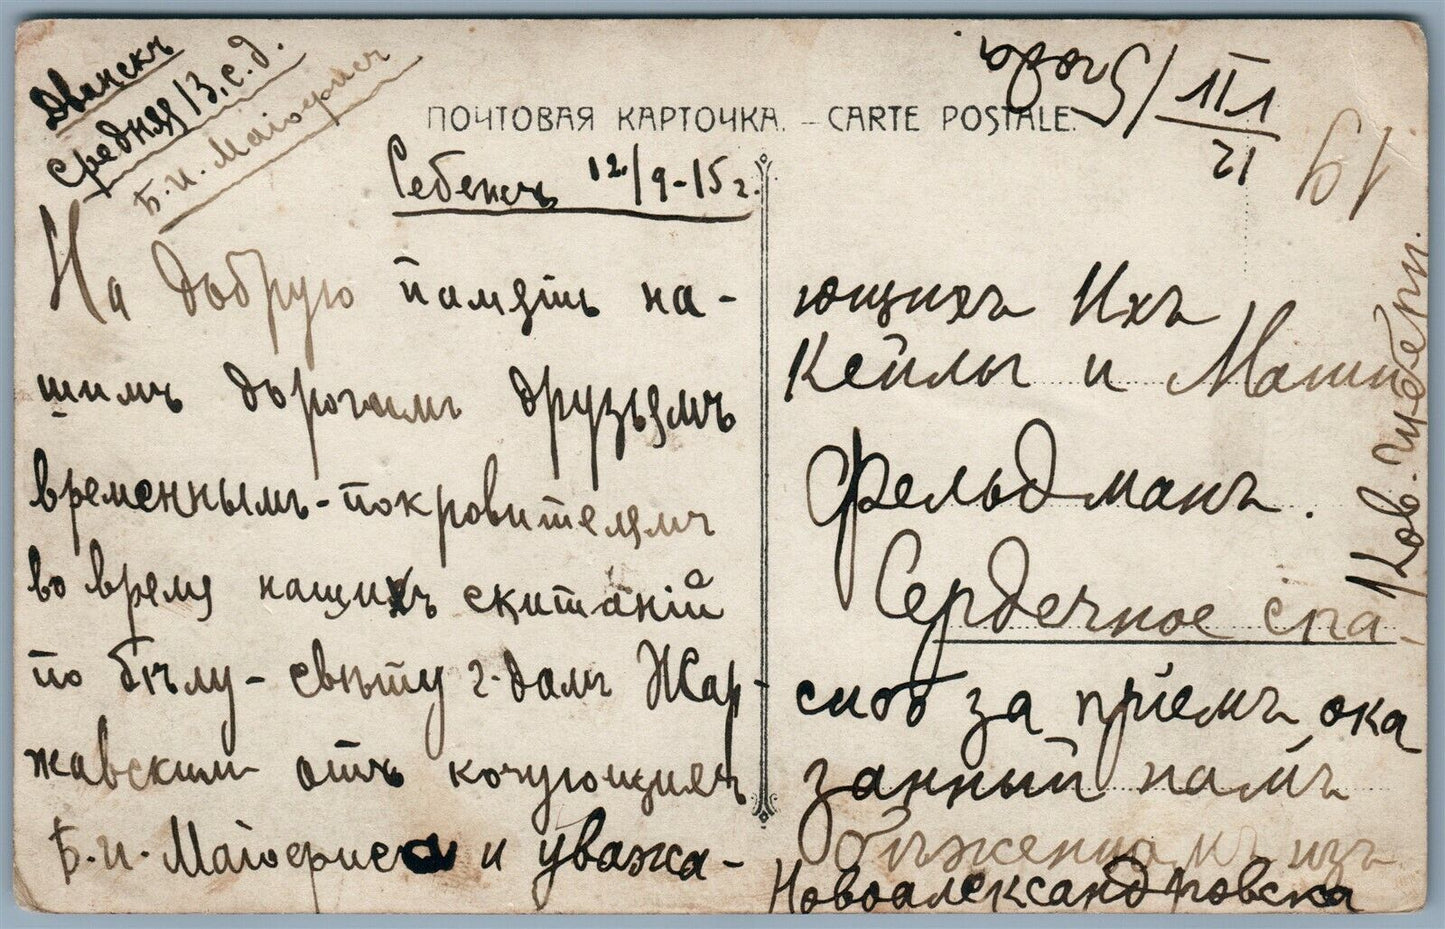 Двинскъ
Средняя 13, с. д.
Б. И. Маіофисъ
ПОЧТОВАЯ КАРТОЧКА. – CARTE POSTALE.
12/VII 15 года
19
Себежъ 12/9-15 г.
На добрую память на-
шимъ дорогимъ друзьямъ
временнымъ-покровителямъ
во время нашихъ скитаній
по бѣлу-свѣту г-дамъ Жар-
жавскимъ отъ кочующихъ
Б. И. Маіофиса и уважа-
ющихъ Ихъ
Кейлы и Маши
Фельдманъ.
Сердечное спа-
сибо за пріемъ ока
занный намъ
бѣженцамъ изъ
Новоалександровска
Ков. губерн.